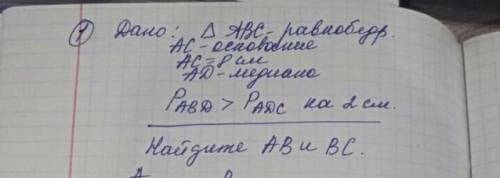 ① Дано: △ АВС - равнобедр.
АС - основание
АС = 8 см
АD - медиана
PABD > PADC на 2 см.
Найдите АВ и ВС.